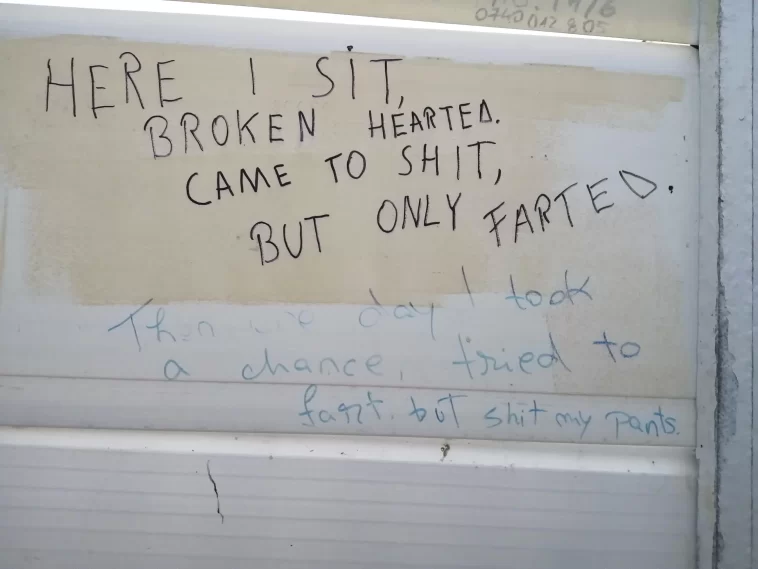 0740 012 805
HERE I SIT,
BROKEN HEARTED.
CAME TO SHIT,
BUT ONLY FARTED.
day I took
a chance, tried to
fart. but shit my pants.